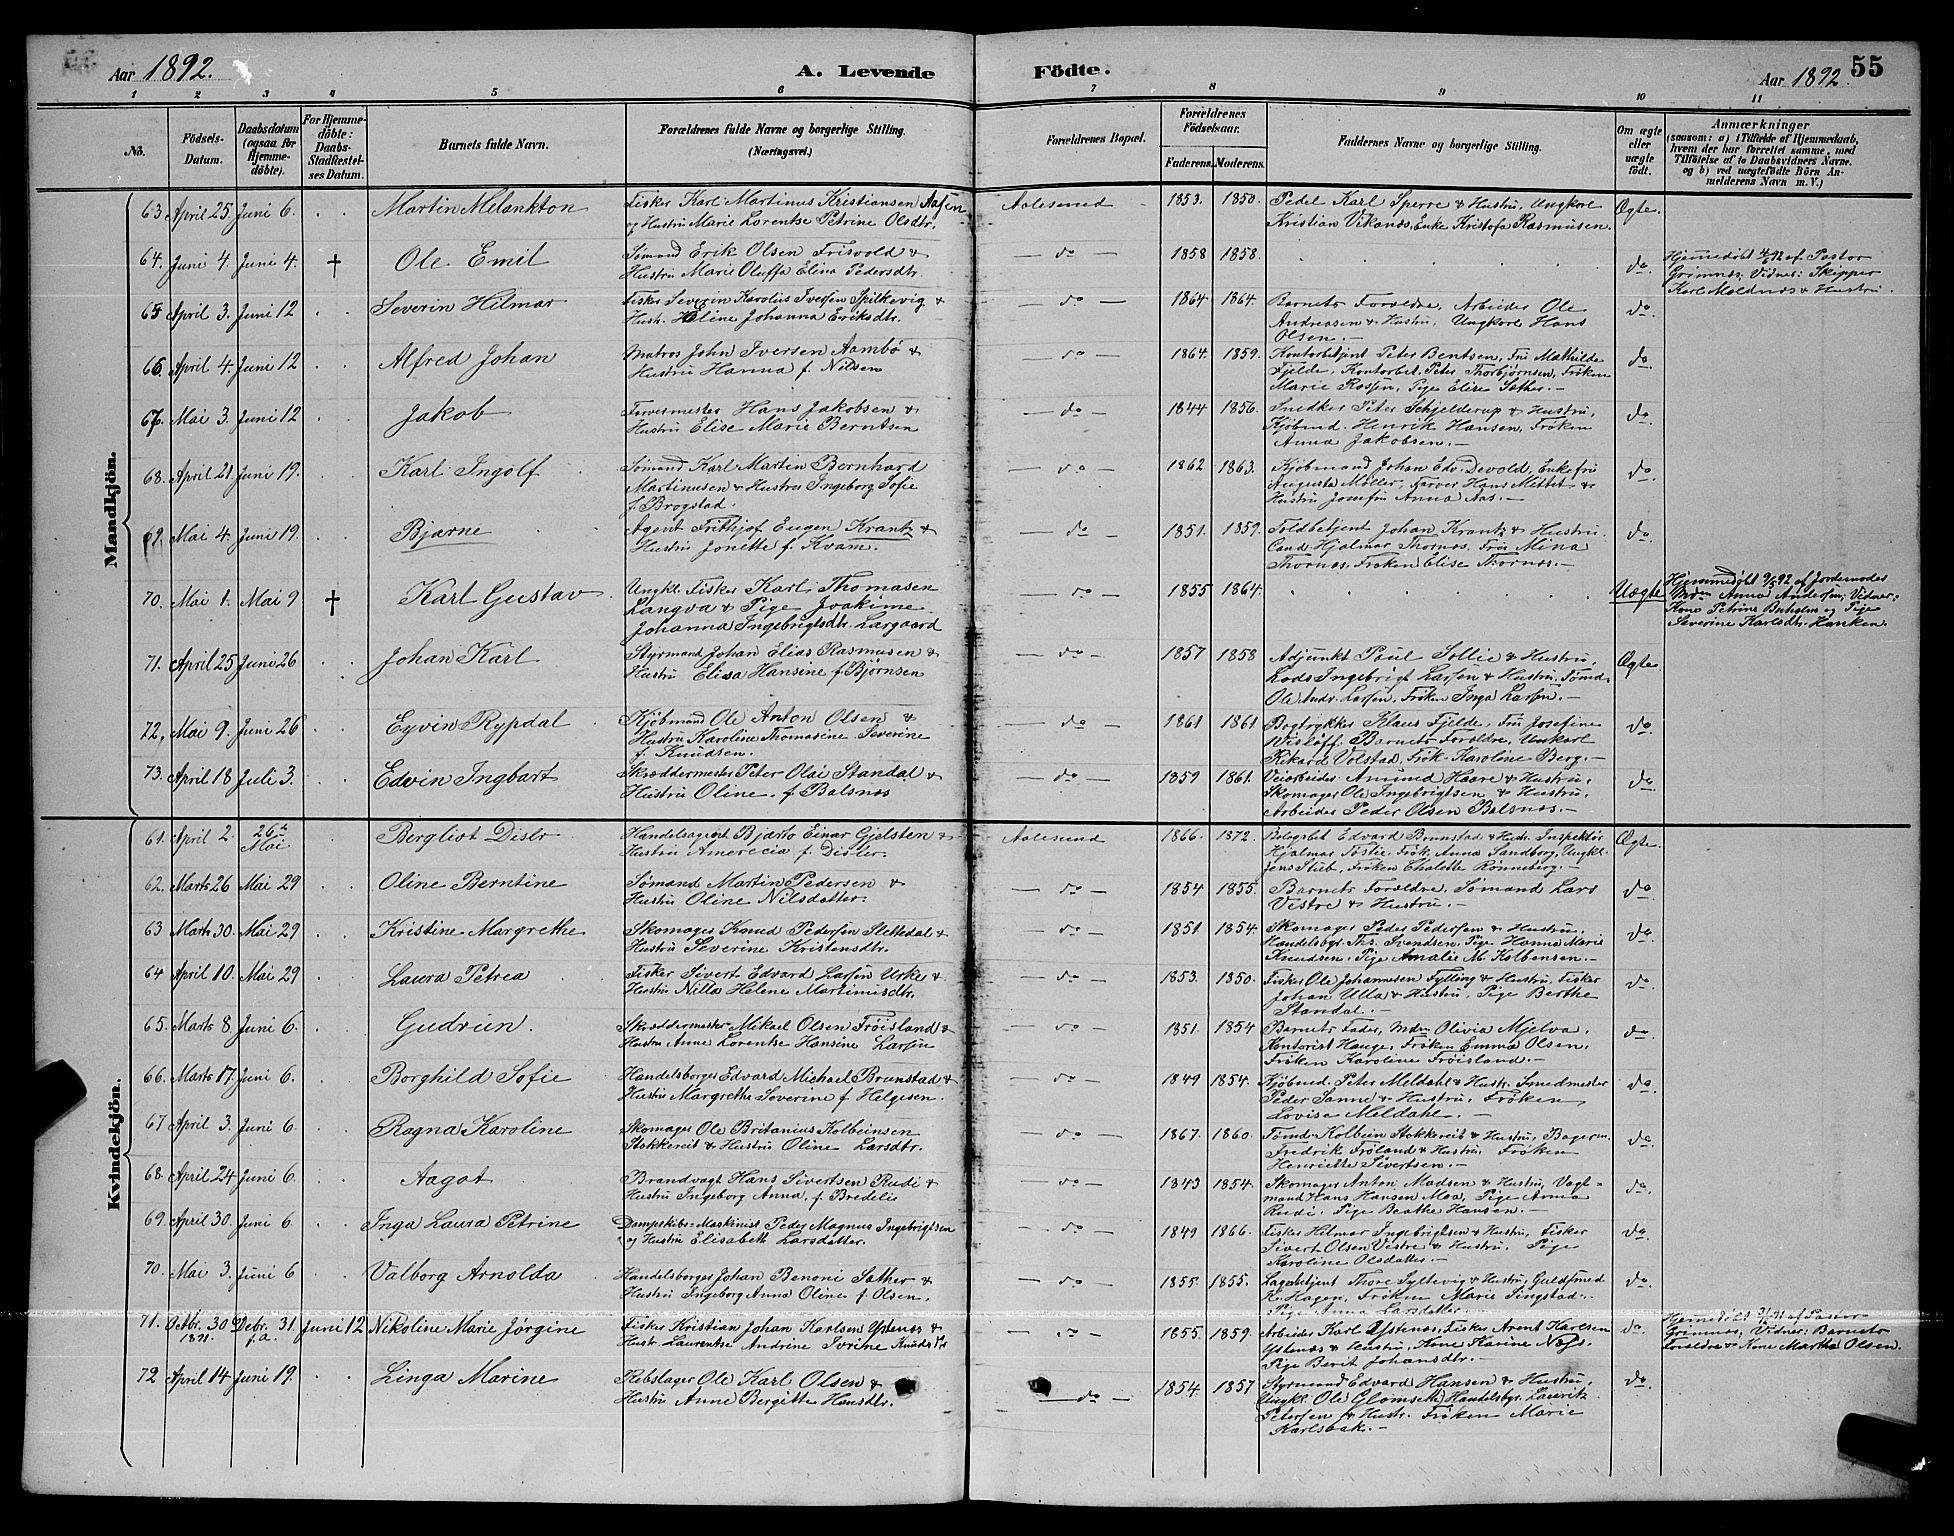 Aar 1892.
A. Levende Födte.
Aar 1892.
55
1 2 3 4 5 6 7 8 9 10 11
No.
Födsels-Datum.
Daabsdatum (ogsaa for Hjemme-döbte).
For Hjemme-döbte: Daabs-Stadfæstel-ses Datum.
Barnets fulde Navn.
Forældrenes fulde Navne og borgerlige Stilling. (Næringsvei.)
Forældrenes Bopæl.
Forældrenes Födselsaar.
Faderens. Moderens.
Faddernes Navne og borgerlige Stilling.
Om ægte eller uægte födt.
Anmærkninger
(saasom: a) i Tilfælde af Hjemmedaab, hvem der har forrettet samme, med Tilföielse af to Daabsvidners Navne. og b) ved uægtefödte Börn Anmelderens Navn m. V.)
Mandkjön.
63. April 25 Juni 6. Martin Melankton Fisker Karl Martinus Kristiansen Aasen og Hustru Marie Lorentse Petrine Olsdtr. Aalesund 1853. 1850. Pedel Karl Sperre & Hustru, Ungkarl Kristian Vikanes, Enke Kristofa Rasmusen. Ægte.
64. Juni 4. Juni 4. † Ole Emil Sømand Erik Olsen Frisvold & Hustru Marie Oluffa Elina Pedersdtr. do 1858 1858. do Hjemmedøbt 4/6 92 af Pastor Grimnæs; Vidner: Skipper Karl Moldnæs & Hustru.
65 April 3. Juni 12 Severin Hilmar Fisker Severin Karolius Iversen Spilkevig & Hust. Heline Johanna Eriksdtr. do 1864 1864. Barnets Forældre, Arbeider Ole Andreasen & Hustru, Ungkarl Hans Olsen. do.
66 April 4. Juni 12 Alfred Johan Matros John Iversen Aambø & Hustru Hanna f. Nilsen do 1864. 1859. Kontorbetjent Peter Bentsen, Fru Mathilde Fjelde, Kontorbet. Peter Thorbjørnsen, Frøken Marie Rossen, Pige Elise Sæther. do
67. Mai 3. Juni 12 Jakob Farvermester Hans Jakobsen & Hustru Elise Marie Berntsen do 1844 1856. Snedker Peter Schjelderup & Hustru, Kjøbmd. Henrik Hansen, Frøken Anna Jakobsen. do
68. April 21. Juni 19. Karl Ingolf Sømand Karl Martin Bernhard Martinusen & Hustru Ingeborg Sofie f. Brogstad. do 1862 1863. Kjøbmand Johan Edv. Devold, Enkefru Augusta Møller, Farver Hans Mittet & Hustru Jomfru Anna Aas. do
69. Mai 4. Juni 19. Bjarne Agent Frithjof Eugen Krantz & Hustru Jonette f. Kvam. do 1851. 1859. Toldbetjent Johan Krantz & Hustru. Cand. Hjalmar Thornæs, Fru Mina Thornæs, Frøken Elise Thornæs. do.
70. Mai 1. Mai 9 † Karl Gustav Ungkl. Fisker Karl Thomasen Langva & Pige Joakime Johanna Ingebrigtsdtr. Lorgaard do 1855 1864. Uægte Hjemmedøbt 9/5 92 af Jordemoder Mdm Anna Andersen; Vidner: Kone Petrine Buholm og Pige Severine Karlsdtr. Hanken.
71. April 25 Juni 26 Johan Karl Styrmand Johan Elias Rasmusen & Hustru Elisa Hansine f. Bjørnsen do 1857 1858 Adjunkt Poul Sollie & Hustru, Lods Ingebrigt Larsen & Hustru, Tømd. Ole Andr. Larsen, Frøken Inga Larsen. Ægte
72. Mai 9. Juni 26 Eyvin Rypdal Kjøbmand Ole Anton Olsen & Hustru Karoline Thomasine Severine f. Knudsen. do 1861 1861 Bogtrykker Klaus Fjelde, Fru Josefine Wisløff. Barnets Forældre, Ungkarl Rikard Volstad, Frøk. Karoline Berg. do
73. April 18 Juli 3. Edvin Ingbart Skræddermester Peter Olai Standal & Hustru Oline f. Balsnæs do 1859 1861. Veiarbeider Amund Haare & Hustru, Skomager Ole Ingebrigtsen & Hustru, Arbeider Peder Olsen Balsnæs. do
Kvindekjön.
61. April 2 26de Mai Bergliot Disler Handelsagent Bjarto Einar Gjelsten & Hustru Amerecia f. Disler. Aalesund 1866. 1872. Edvard Brunstad & Hustr. Inspektør Hjalmar Tostie, Frøk. Anna Sandberg, Ungkl. Jens Stub, Frøken Chalotte Rønneberg. Ægte.
62. Marts 26 Mai 29 Oline Berntine Sømand Martin Pedersen & Hustru Oline Nilsdatter. do 1854 1855. Barnets Forældre, Sømand Lars Vestre & Hustru. do
63 Marts 30. Mai 29 Kristine Margrethe Skomager Knud Pedersen Slettedal & Hustru Severine Kristensdtr. do 1851 1854. Skomager Peder Pedersen & Hustru, Handelsbgr. Ths. Svendsen, Pige Hanna Marie Knudsen, Pige Amalie M. Kolbensen. do
64 April 10. Mai 29 Laura Petrea Fisker Sivert Edvard Larsen Urke & Hustru Nilla Helene Martinusdtr. do 1853. 1850. Fisker Ole Johannesen Fylling & Hustru, Fisker Johan Ulla & Hustru, Pige Berthe Standal. do.
65. Marts 8. Juni 6. Gudrun. Skræddermester Mikael Olsen Frøisland & Hustru Anne Lorentse Hansine Larsen do 1851. 1854 Barnets Fader, Mdm Olivia Mjelva. Kontorist Hauge, Frøken Emma Olsen, Frøken Karoline Frøisland. do
66. Marts 17. Juni 6. Borghild Sofie Handelsborger Edvard Michael Brunstad & Hustru Margrethe Severine f. Helgesen. do 1849 1854. Kjøbmd. Peter Meldahl & Hustr. Smedmester Peder Sanne & Hustru, Frøken Lovise Meldahl. do.
67 April 3. Juni 6. Ragna Karoline Skomager Ole Britanius Kolbeinsen Stokkereit & Hustru Oline Larsdtr. do 1867. 1860. Tømd. Kolbein Stokkereit & Hustru, Bagerm. Fredrik Frøland & Hustru, Frøken Henriette Sivertsen. do.
68. April 24 Juni 6. Aagot Brandvagt Hans Sivertsen Rudi & Hustru Ingeborg Anna, f. Bredelie do 1843 1854. Skomager Anton Madsen & Hustru, Vagtmand Hans Hansen Moa, Pige Anna Rudi, Pige Beathe Hansen. do.
69. April 30. Juni 6. Inga Laura Petrine Dampskibs-Maskinist Peder Magnus Ingebrigtsen og Hustru Elisabeth Larsdatter. do 1849 1866. Fisker Hilmar Ingebrigtsen & Hustru, Fisker Sivert Olsen Vestre & Hustru. Pige Karoline Olsdatter. do.
70. Mai 3. Juni 6 Valborg Arnolda Handelsborger Johan Benoni Sæther & Hustru Ingeborg Anna Oline f. Olsen. do 1855. 1855. Lagbetjent Thore Syltevig & Hustru, Guldsmed K. Hagen, Frøken Marie Singstad, Pige Anna Larsdatter. do.
71. Octbr. 30 1891. Debr. 31. f.A. Juni 12 Nikoline Marie Jørgine Fisker Kristian Johan Karlsen Ystenæs & Hustr. Laurentse Andrine Ivrine Knudsdtr. do 1855. 1859. Arbeider Karl Ystenæs, Fisker Arent Karlsen Ystenæs & Hustru, Kone Karine Næss, Pige Berit Johansdtr. do. Hjemmedøbt af Pastor Grimnæs; Vidner: Barnets Forældre & Kone Martha Olsen.
72 April 14 Juni 19. Linga Marine Rebslager Ole Karl Olsen & Hustru Anne Bergitte Hansdtr. do 1854. 1857 Styrmand Edvard Hansen & Hustru, Ungkl. Ole Glomseth, Handelsbgr. Lauritz Petersen & Hustr. Frøken Marie Karlsbak. do.